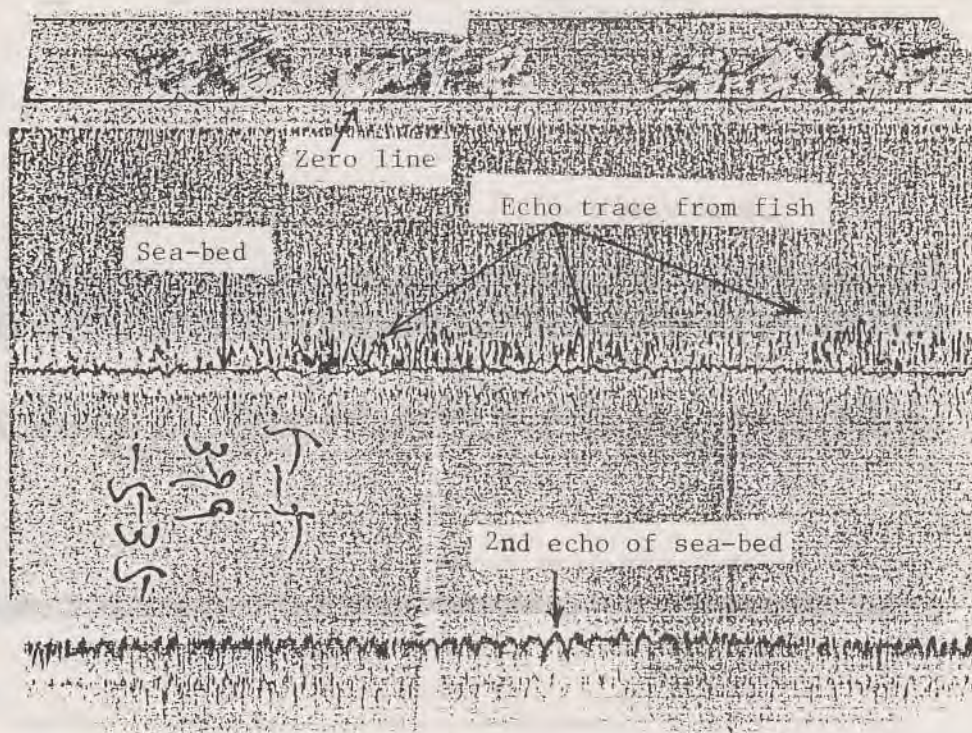 Zero line
Echo trace from fish
Sea-bed
2nd echo of sea-bed